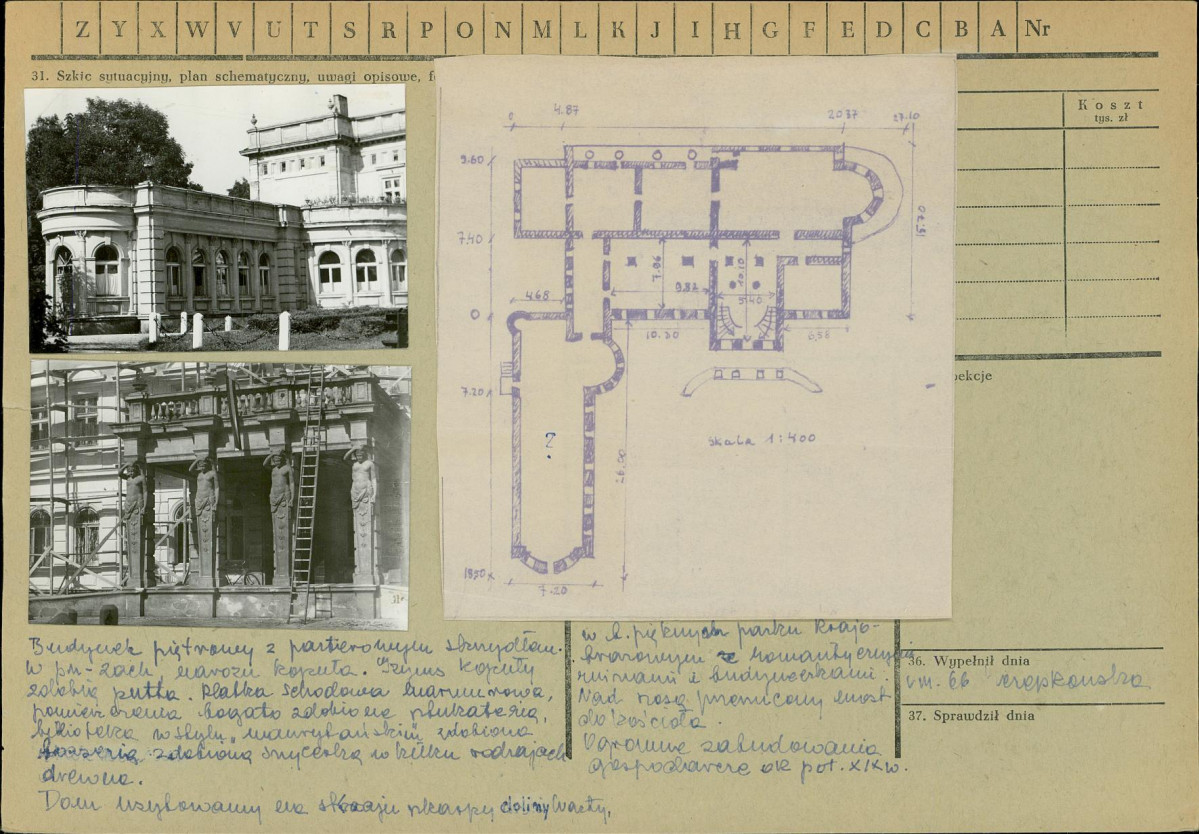 Z Y X W V U T S R P O N M L K J I H G F E D C B A Nr
31. Szkic sytuacyjny, plan schematyczny, uwagi opisowe,
Koszt
tys. zł
0 4.87 20 37 27.10
9.60
7.40
15.70
7.06
9.82
10.10
9.40
468
0
10.30
6,58
7.20
pekcje
skala 1:400
?
26.00
1850
7.20
Budynek piętrowy z parterowym skrzydłam.
w pn-zach narożu kopuła. Gzyms kopuły
zdobią putta. Klatka schodowa marmurowa,
pomieszczenia bogato zdobione sztukaterią,
biblioteka w stylu "mauretańskim" zdobiona
boazerią zdobioną snycerką w kilku rodzajach
drewna.
Dom usytuowany na skraju skarpy doliny Warty,
w b. pięknym parku krajo-
brazowym z romantycznymi
ruinami i budyneczkami.
Nad fosą przerzucony most
do kościoła.
Ogromne zabudowania
gospodarcze ok poł. XIX w.
36. Wypełnił dnia
VIII. 66
37. Sprawdził dnia